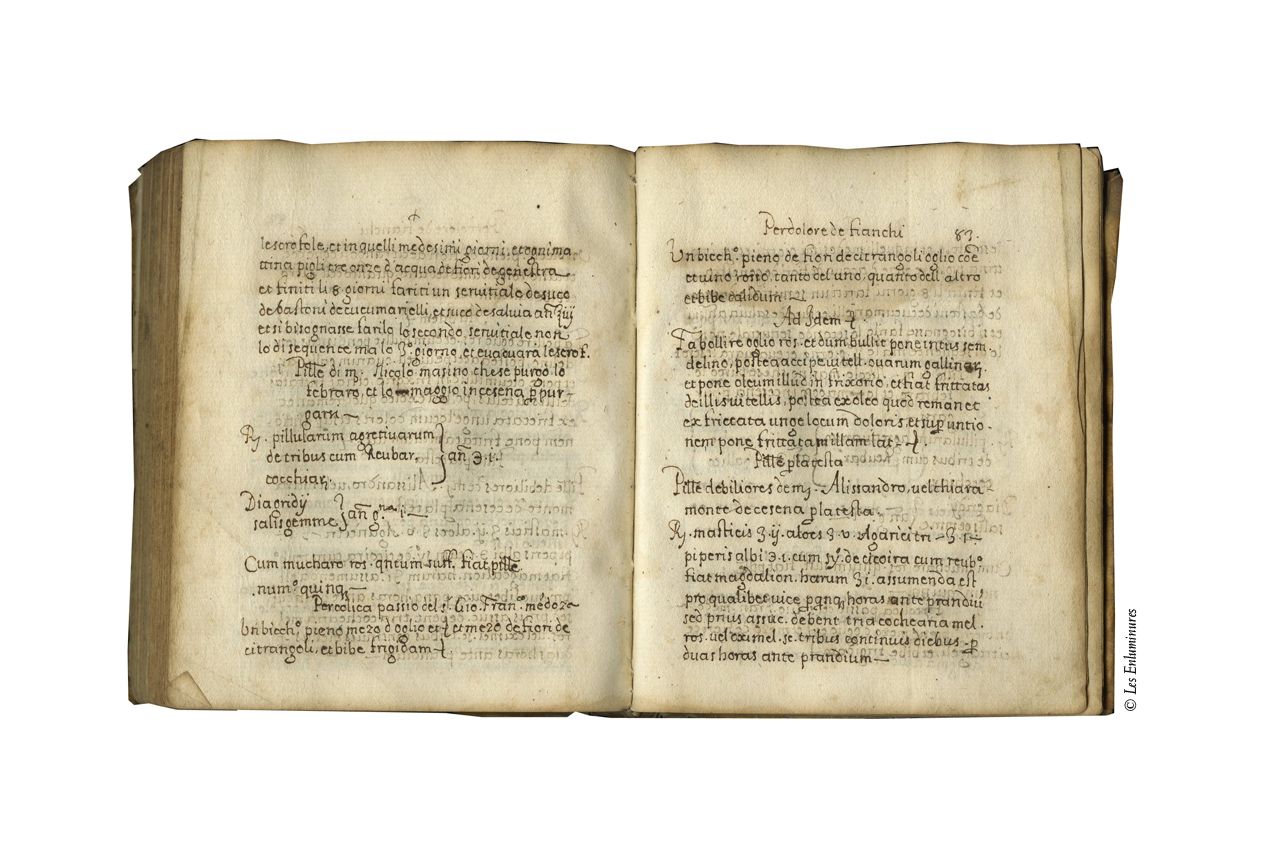 le scrofole, et in quelli medesimi giorni, et ogni ma
ttina pigli tre onze d'acqua de fiori de genestra
et finiti li 8 giorni fariti un servitiale de suco
de bastoni de cucumarielli, et suco de salvia añ ʒiij
et si bisognasse farilo lo secondo servitiale non
lo di sequente ma lo 3º giorno, et evacuara le scrof.
Pille di m. Nicolo masino che se purgo lo
febraro, et lo maggio in cesena ꝑ pur-
garu
℞. pillularum agretivarum
de tribus cum Reubar. añ ℈.i.
cocchiar.
Diagridij
salis gemme añ gna i
Cum mucharo ros. qntum suff. fiat pille
numº quinq,
Per colica passio del s. Gio. Franº
Un bicchº pieno mezo d'oglio et mezo de fiori de
citrangoli, et bibe frigidam
Per dolore de fianchi 83.
Un bicchº. pieno de fiori de citrangoli oglio cõe
et vino rosso, tanto del uno, quanto dell'altro
et bibe calidum
Ad Idem
Fa bollire oglio ros. et dum bullit pone intus sem.
de lino, postea accipe vitell. ovarum gallinar.
et pone oleum illud in frixorio, et fiat frittatas
dellis vitellis, postea ex oleo quod remanet
ex friccata unge locum doloris, et sup untio-
nem pone frittatam illam
Pille ꝑ la testa
Pille debiliores de m. Alissandro, vel chiara
monte de cesena ꝑ la testa.
℞. masticis ʒ.ij. aloes ʒ.v. Agarici tri. ʒ.i.
piperis albi ℈.i. cum sy. de cicoira cum reubº
fiat magdalion. harum ʒi. assumenda est
pro qualibet vice horas ante prandiũ
sed prius assue. debent tria cochearia mel.
ros. vel oximel. se. tribus continuis diebus ꝑ
duas horas ante prandium
© Les Enluminures